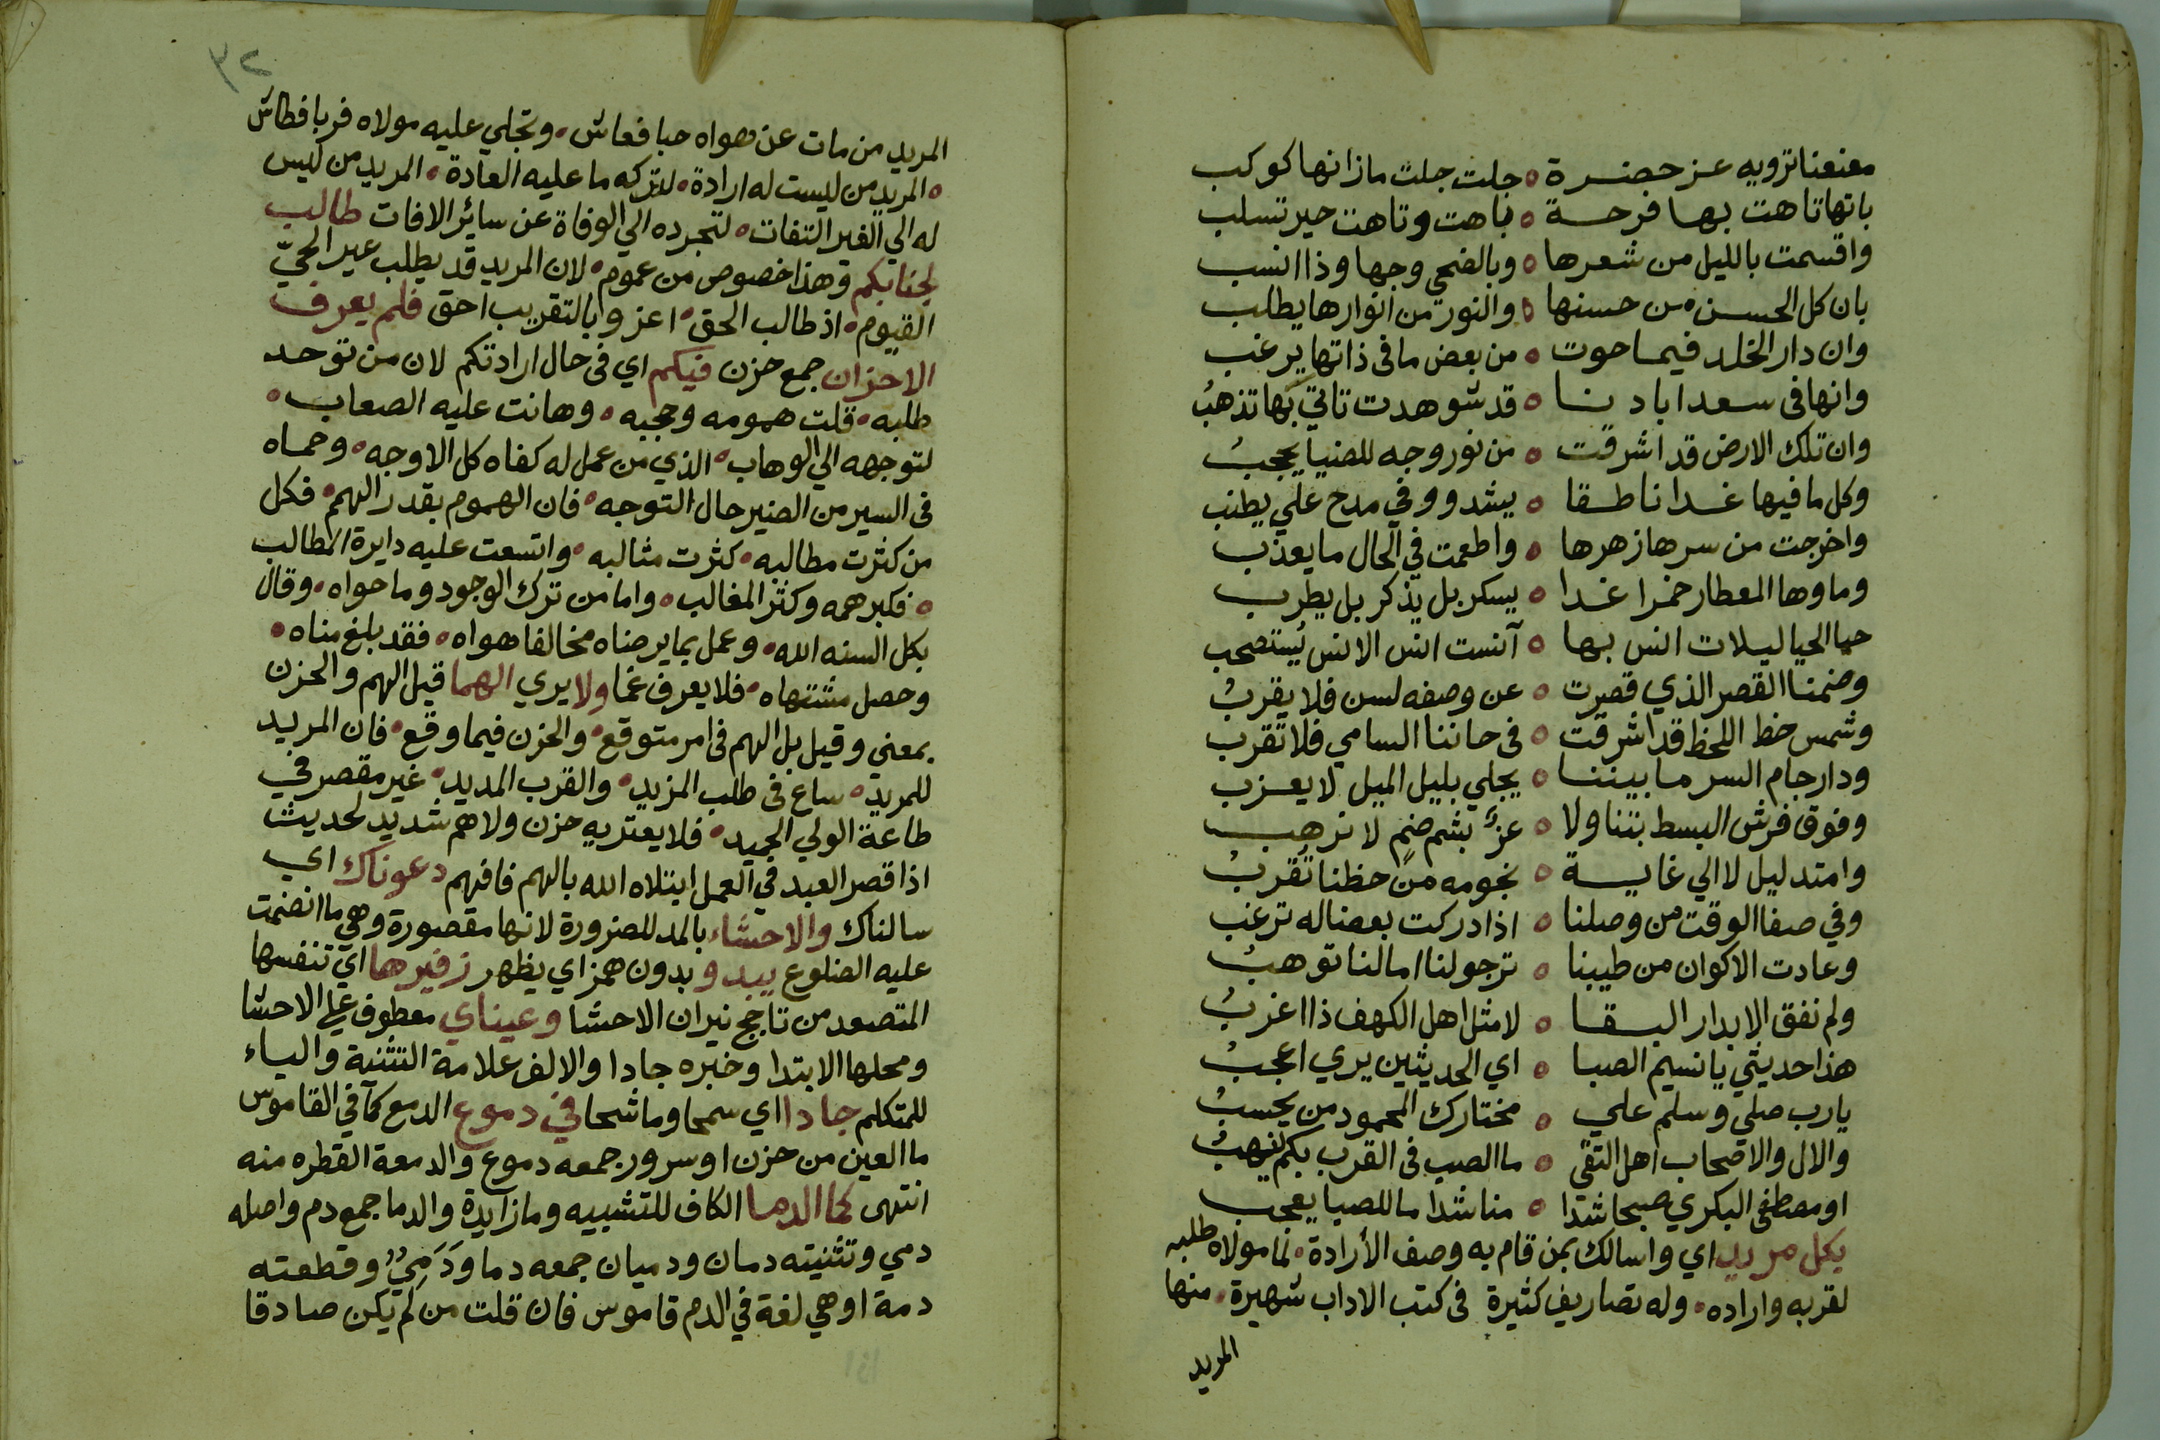 معنعنا ترويه عن حضرة ه جلت جلت ما زانها كوكب
باتها تاهت بها فرحة ه باهت وتاهت حير تسلب
واقسمت بالليل من شعرها ه وبالضحي وجها وذا انسب
بان كل الحسن من حسنها ه والنور من انوارها يطلب
وان دار الخلد فيما حوت ه من بعض ما في ذاتها يرغب
وانها في سعد ابادنا ه قد شوهدت تاتي بها تذهب
وان تلك الارض قد اشرقت ه من نور وجه للضيا يحجب
وكل ما فيها غدا ناطقا ه يشدو وفي مدح علي يطنب
واخرجت من سرها زهرها ه واطعمت في الحال ما يعذب
وماوها المعطار خمرا غدا ه يسكر بل يذكر بل يطرب
حيا الحيا ليلات انس بها ه آنست انس الانس يستصحب
وضمنا القصر الذي قصرت ه عن وصفه لسن فلا يقرب
وشمس حظ اللحظ قد اشرقت ه في حاننا السامي فلا تقرب
ودار جام السر ما بيننا ه يجلي بليل الميل لا يعزب
وفوق فرش البسط بتنا ولا ه عز بشم ضم لا نرهب
وامتد ليل لا الي غاية ه نجومه من حظنا تقرب
وفي صفا الوقت من وصلنا ه اذ ادركت بعضا له ترغب
وعادت الاكوان من طيبنا ه ترجو لنا امالنا توهب
ولم نفق الا بدار البقا ه لا مثل اهل الكهف ذا اغرب
هذا حديثي يا نسيم الصبا ه اي الحديثين يري اعجب
يا رب صلي وسلم علي ه مختارك المحمود من يحسب
والال والاصحاب اهل التقي ه ما الصب في القرب بكم ينهب
او مصطفى البكري صبحا شدا ه منا شدا ما للصبا يعجب
بكل مريد اي واسالك بمن قام به وصف الأرادة ه لما مولاه طلبه
لقربه واراده ه وله تصاريف كثيرة في كتب الاداب شهيرة ه منها
المريد
٣٢
المريد من مات عن هواه حبا فعاش ه وتجلي عليه مولاه قربا فطاش
ه المريد من ليست له ارادة ه لتركه ما عليه العادة ه المريد من ليس
له الي الغير التفات ه لتجرده الي الوفاة عن سائر الافات طالب
لجنابكم وهذا خصوص من عموم ه لان المريد قد يطلب غير الحيّ
القيوم ه اذ طالب الحق ه اعز وبالتقريب احق فلم يعرف
الاحزان جمع حزن فيكم اي في حال ارادتكم لان من توحد
طلبه ه قلت همومه وحجبه ه وهانت عليه الصعاب ه
لتوجهه الي الوهاب ه الذي من عمل له كفاه كل الاوجه ه وحماه
في السير من الضير حال التوجه ه فان الهموم بقدر الهمم ه فكل
من كثرت مطالبه ه كثرت مثالبه ه واتسعت عليه دايرة المطالب
ه فكبر همه وكثر المغالب ه واما من ترك الوجود وما حواه ه وقال
بكل السنه الله ه وعمل بما يرضاه مخالفا هواه ه فقد بلغ مناه ه
وحصل مشتهاه ه فلا يعرف غما ولا يري الهما قيل الهم والحزن
بمعني وقيل بل الهم في امر متوقع ه والحزن فيما وقع ه فان المريد
للمريد ه ساع في طلب المزيد ه والقرب المديد ه غير مقصر في
طاعة الولي الحميد ه فلا يعتريه حزن ولا هم شديد لحديث
اذا قصر العبد في العمل ابتلاه الله بالهم فافهم دعوناك اي
سالناك والاحشاء بالمد للضرورة لانها مقصورة وهي ما انضمت
عليه الضلوع يبدو وبدون همز اي يظهر زفيرها اي تنفسها
المتصعد من تاجج نيران الاحشا وعيناي معطوف علي الاحشا
ومحلها الابتدا وخبره جادا والالف علامة التثنية والياء
للمتكلم جادا اي سمحا وما شحا في دموع الدمع كما في القاموس
ما العين من حزن او سرور جمعه دموع والدمعة القطره منه
انتهى كما الدما الكاف للتشبيه وما زايدة والدما جمع دم واصله
دمي وتثنيته دمان ودميان جمعه دما ودَمِيٌّ وقطعته
دمة او هي لغة في الدم قاموس فان قلت من لم يكن صادقا